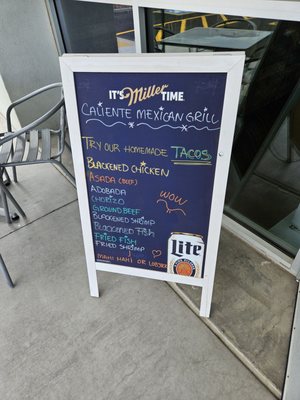 IT'S Miller TIME.
CALIENTE MEXICAN GRILL
TRY OUR HOMEMADE TACOS
BLACKENED CHICKEN
ASADA (BEEF)
ADOBADA
CHORIZO
GROUND BEEF
BLACKENED SHRIMP
BLACKENED FISH
FRIED FISH
FRIED SHRIMP
MAHI MAHI OR LOBSTER
WOW
Lite